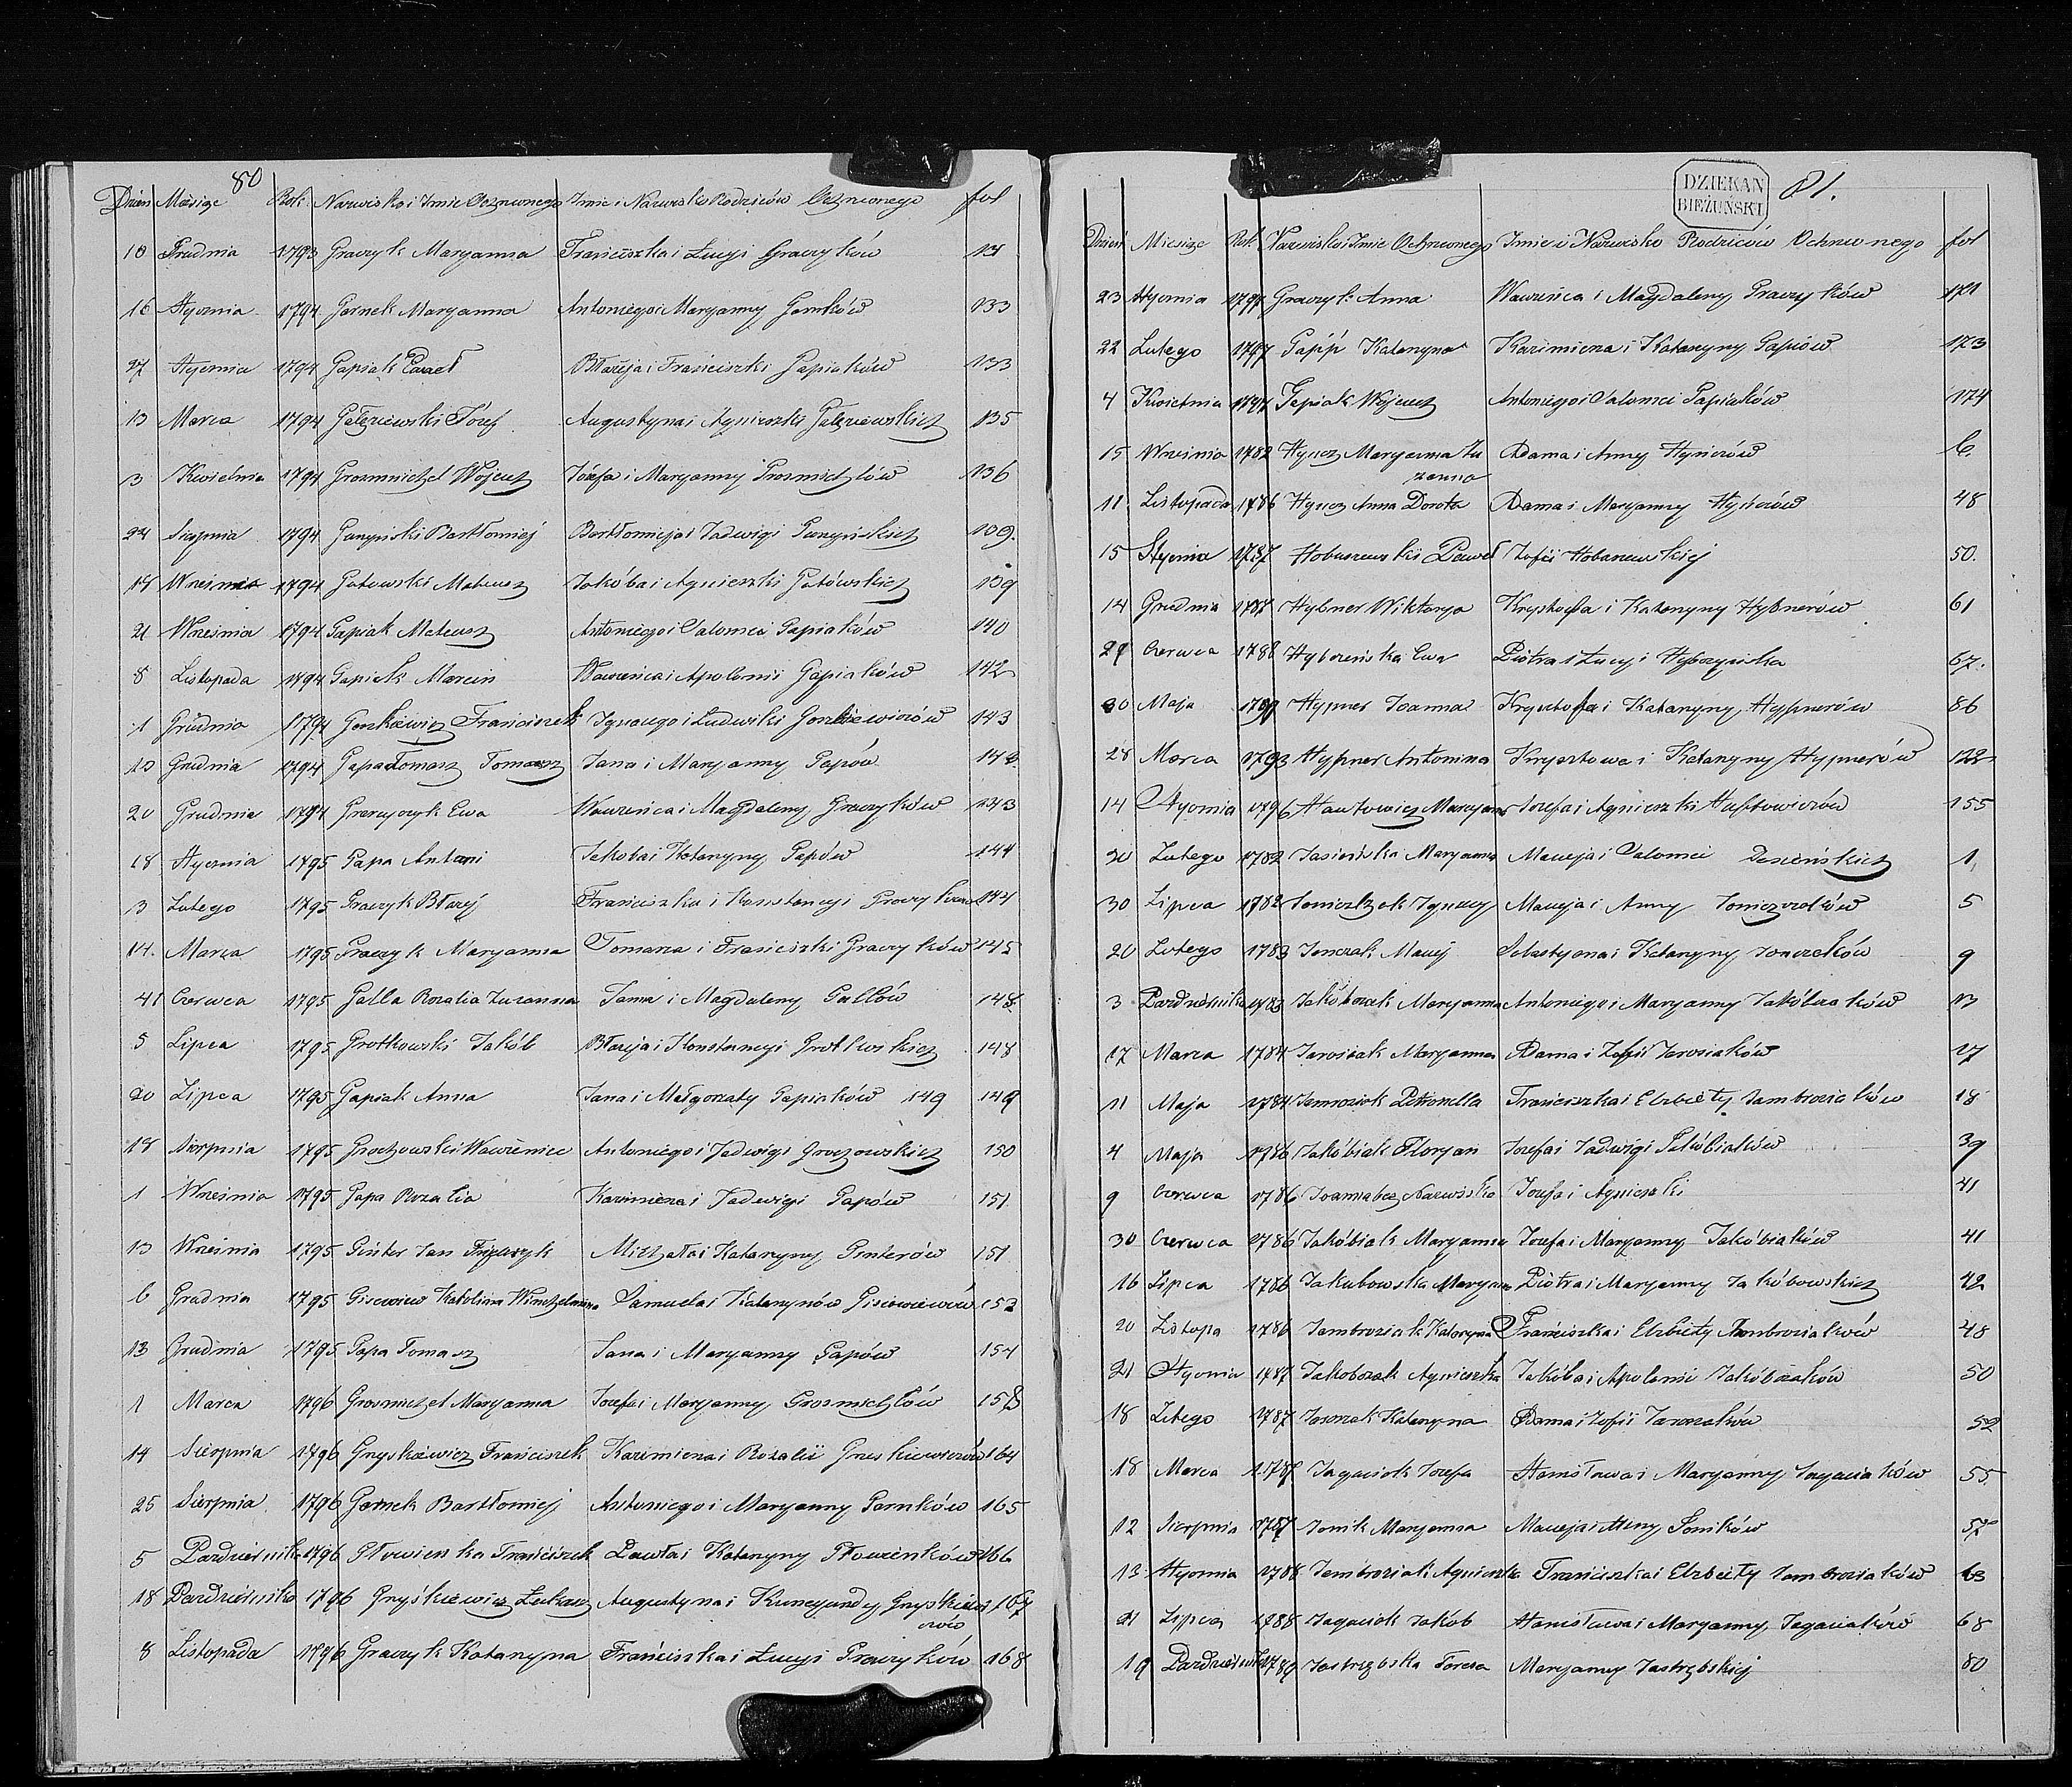 80
Dzień Miesiąc Rok Nazwisko i Imie Ochrzconego Imie i Nazwisko Rodziców Ochrzconego fol
10 Grudnia 1793 Graczyk Maryanna Franciszka i Łucyi Graczyków 131
16 Stycznia 1794 Garnek Maryanna Antoniego i Maryanny Garnków 133
27 Stycznia 1794 Gapiak Paweł Błażeja i Franciszki Gapiaków 133
13 Marca 1794 Gałęziewski Józef Augustyna i Agnieszki Gałęziewskich 135
3 Kwietnia 1794 Grosmichel Wojciech Józefa i Maryanny Grosmichlów 136
24 Sierpnia 1794 Bartłomiej Bartłomieja i Jadwigi 109.
14 Września 1794 Gutowski Mateusz Jakóba i Agnieszki Gutówskich 139
21 Września 1794 Gapiak Mateusz Antoniego i Salomei Gapiaków 140
8 Listopada 1794 Gapiak Marcin Wawrzeńca i Apolonii Gapiaków 142
1 Grudnia 1794 Goszkiewicz Franciszek Ignacego i Ludwiki Goszkiewiczów 143
10 Grudnia 1794 Gapa Tomasz Tomasz Jana i Maryanny Gapów 143
20 Grudnia 1794 Ewa Wawrzeńca i Magdaleny Graczyków 143
18 Stycznia 1795 Gapa Antoni Jakoba i Katarzyny Gapów 144
13 Lutego 1795 Graczyk Błażej Franciszka i Konstancyi Graczyków 144
14. Marca 1795 Graczyk Maryanna Tomasza i Franciszki Graczyków 145
41 Czerwca 1795 Galla Rozalia Zuzanna Jana i Magdaleny Gallów 148
5 Lipca 1795 Grotkowski Jakób Błażeja i Konstancyi Grotkowskich 148
20 Lipca 1795 Gapiak Anna Jana i Małgorzaty Gapiaków 149 149
18 Sierpnia 1795 Grochowski Wawrzeniec Antoniego i Jadwigi Grochowskich 150
1 Września 1795 Gapa Rozalia Kazimierza i Jadwigi Gapów 151
13 Września 1795 Ginter Jan Michała i Katarzyny Ginterów 151
6 Grudnia 1795 Karolina Samuela i Katarzynów 152
13 Grudnia 1795 Gapa Tomasz Jana i Maryanny Gapów 154
1 Marca 1796 Grosmichel Maryanna Jozefa i Maryanny Grosmichlów 158
14 Sierpnia 1796 Gryskiewicz Franciszek Kazimierza i Rozalii Gruskiewiczów 164
25 Sierpnia 1796 Garnek Bartłomiej Antoniego i Maryanny Garnków 165
5 Pazdziernika 1796 Głowienka Franciszek Pawła i Katarzyny Głowienków 166
18 Pazdziernika 1796 Gryśkiewicz Łukasz Augustyna i Kunegundy Gryśkiewi 167
czów
8 Listopada 1796 Graczyk Katarzyna Franciszka i Łucyi Graczyków 168
DZIEKAN
BIEŻUŃSKI
81.
Dzień Miesiąc Rok Nazwisko i Imie Ochrzconego Imie i Nazwisko Rodziców Ochrzconego fol
23 Stycznia 1797 Graczyk Anna Wawrzeńca i Magdaleny Graczyków 171
22 Lutego 1797 Gapp Katarzyna Kazimierza i Katarzyny Gapiów 173
4 Kwietnia 1797 Gapiak Wojciech Antoniego i Salomei Gapiaków 174
15 Września 1782 Hyncz Maryanna Zu Adama i Anny 6.
zanna
11. Listopada 1786 Hyncz Anna Dorota Adama i Maryanny 48
15 Stycznia 1787 Hobuszewski Paweł Zofii 50.
14 Grudnia 1787 Hybner Wiktorya Krysztofa i Katarzyny Hybnerów 61
29 Czerwca 1788 Ewa Piotra i Łucyi 67.
30 Maja 1790 Hypner Joanna Krysztofa i Katarzyny Hypnerów 86
28 Marca 1793 Hypner Antonina i Katarzyny Hypnerów 122
14 Stycznia 1796 Maryanna Jozefa i Agnieszki 155
20 Lutego 1782 Jasieńska Maryanna Macieja i Salomei 1
30 Lipca 1782 Ignacy Macieja i Anny 5
20 Lutego 1783 Jonczak Maciej Sebastyana i Katarzyny Jonczaków 9
3 Pazdziernika 1783 Jakóbczak Maryanna Antoniego i Maryanny Jakóbczaków 13
17 Marca 1784 Jarosiak Maryanna Adama i Zofii Jarosiaków 17
11 Maja 1784 Jambroziak Petronella Franciszka i Elzbiety Jambroziaków 18
4 Maja 1786 Jakóbiak Floryan Jozefa i Jadwigi Jakóbiaków 39
9 Czerwca 1786 Joanna bez Nazwiska Jozefa i Agnieszki 41
30 Czerwca 1786 Jakóbiak Maryanna Jozefa i Maryanny Jakóbiaków 41
16 Lipca 1786 Jakubowska Maryanna Piotra i Maryanny Jakóbowskich 42
20 Listopa 1786 Jambroziak Katarzyna Franciszka i Elzbiety Ambroziaków 48
21 Stycznia 1787 Jakobczak Agnieszka Jakóba i Apolonii Jakóbczaków 50
18 Lutego 1787 Katarzyna Adama i Zofii 52
18 Marca 1787 Jagaciak Jozefa Stanisława i Maryanny Jagaciaków 55
12 Sierpnia 1787 Jonik Maryanna Macieja i Anny Joników 57
13 Stycznia 1788 Jambroziak Agnieszka Franciszka i Elzbiety Jambroziaków 63
21 Lipca 1788 Jagaciak Jakób Stanisława i Maryanny Jagaciaków 68
19 Pazdziernika 1789 Jastrzębska Teresa Maryanny Jastrzębskiej 80